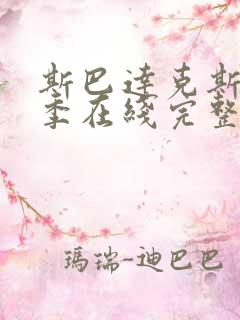 斯巴達克斯
季在綫完整
瑪瑞-迪巴巴